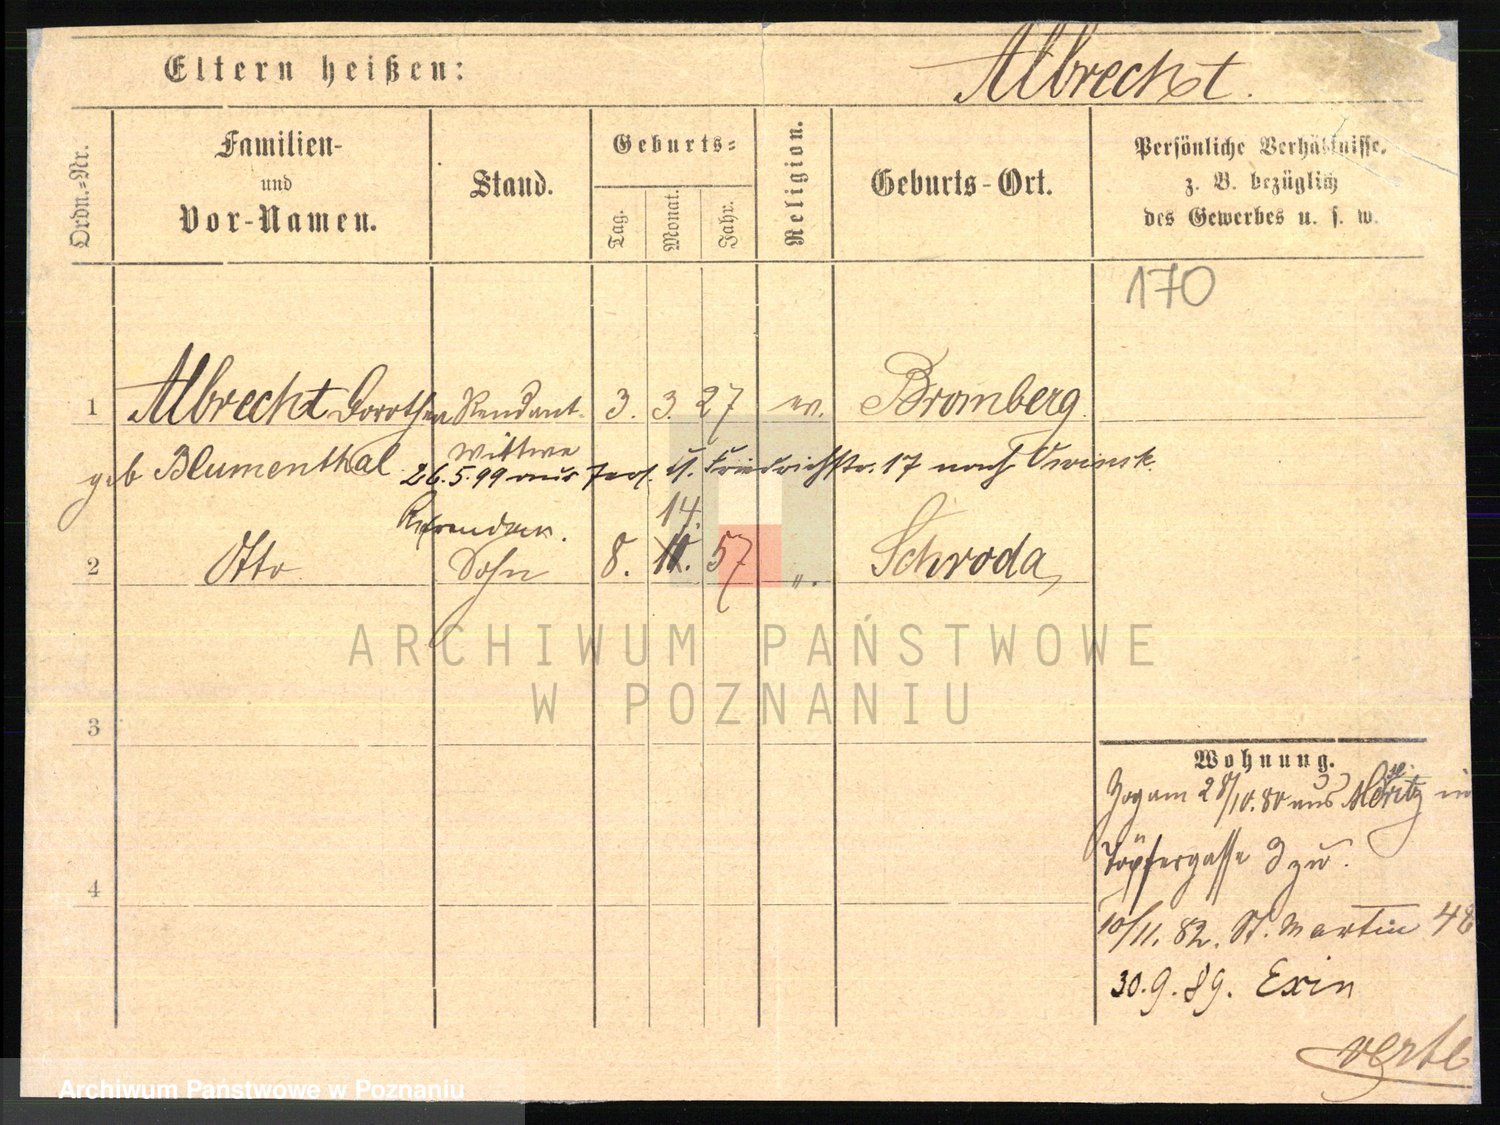 Eltern heißen:
Albrecht.
Ordn.-Nr.
Familien-
und
Vor-Namen.
Stand.
Geburts-
Tag.
Monat.
Jahr.
Religion.
Geburts-Ort.
Persönliche Verhältnisse,
z. B. bezüglich
des Gewerbes u. s. w.
170
1 Albrecht Dorothea Rendant. 3. 3. 27 ev. Bromberg
geb Blumenthal Wittwe
26.5.99 aus Friedrichstr. 17 nach
14.
2 Otto Sohn 8. 57 ". Schroda
ARCHIWUM PAŃSTWOWE
W POZNANIU
3
Wohnung.
Zog am 28/10.80 aus in
Töpfergasse 3 zu.
4
10/11. 82. St. Martin 48
30.9.89. Exin
Archiwum Państwowe w Poznaniu